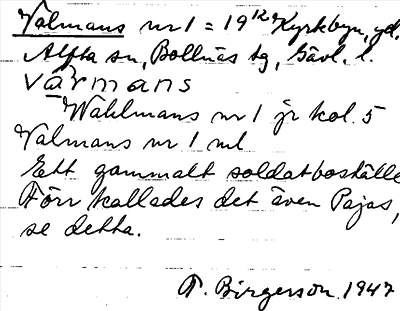 Välmans nr 1 = 19 K Kyrkbyn, gd.
Alfta sn, Bollnäs tg, Gävl. l.
Vårmans
Wahlmans nr 1 jr kol. 5
Valmans nr 1 ml
Ett gammalt soldatboställe
Förr kallades det även Pajas,
se detta.
T. Birgerson 1947